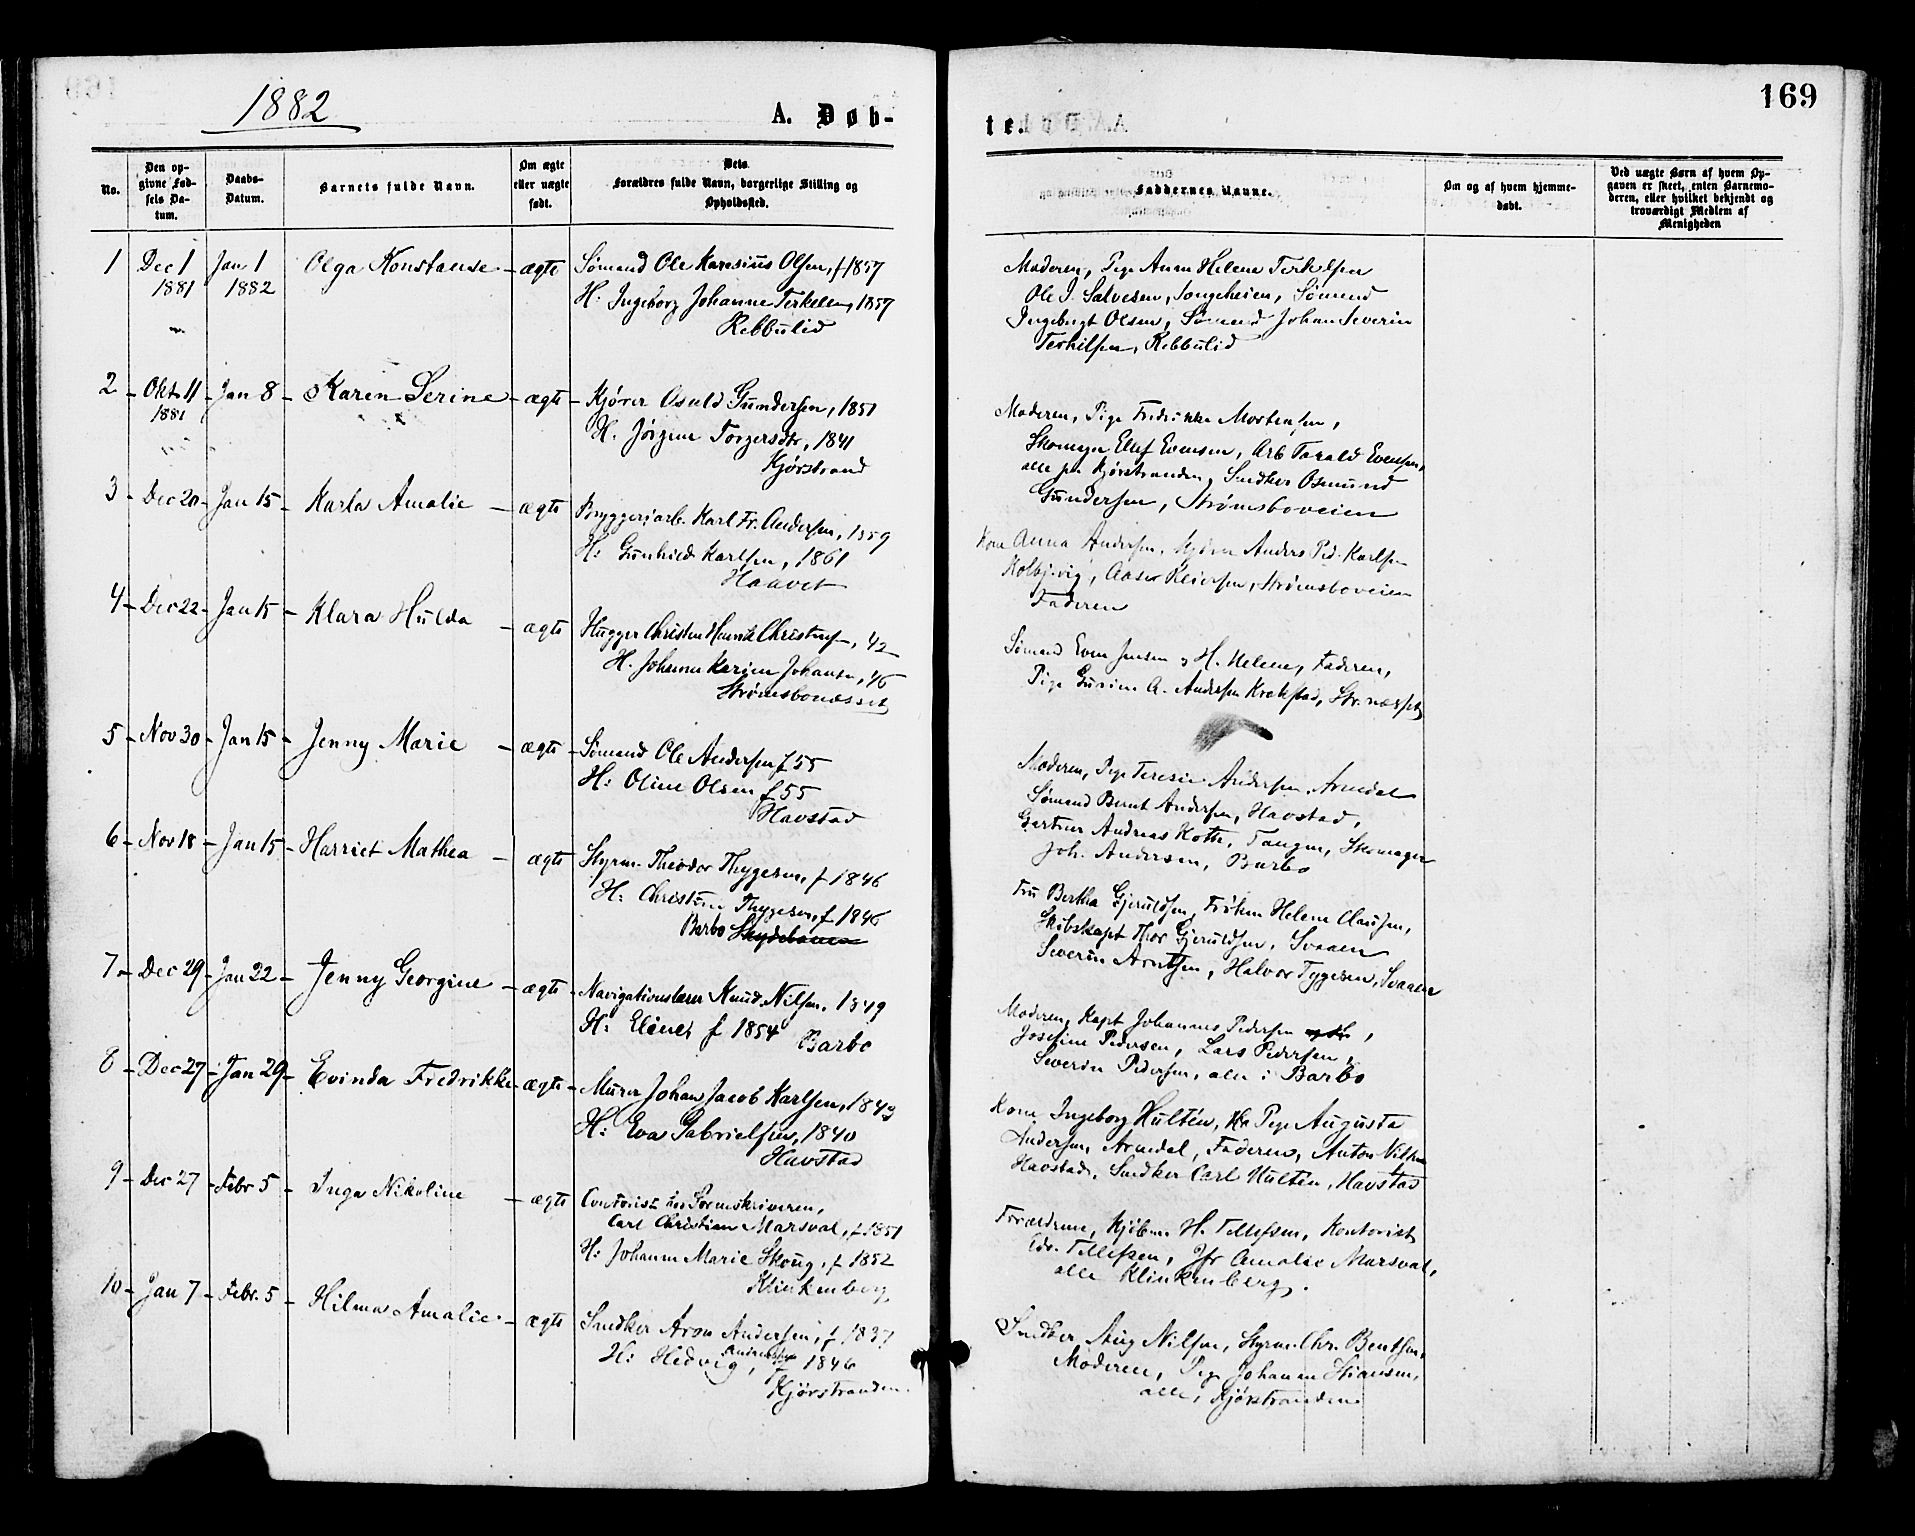 1882
A. Døb-
No.
Den op-
givne Fød-
sels Da-
tum.
Daabs-
Datum.
Barnets fulde Navn.
Om ægte
eller uægte
født.
Dets
Forældres fulde Navn, borgerlige Stilling og
Opholdssted.
1 Dec 1 Jan 1 Olga Konstanse ægte Sømand Ole Olsen, f 1857
1881 1882 H: Ingeborg Johanne Terkelsen, 1857
Rebbulid
2 Okt 11 Jan 8 Karen Serine ægte Kjører Osuld Gundersen, 1851
1881 H. Jørgine Torgersdtr, 1841
Kjørstrand
3 Dec 20 Jan 15 Karla Amalie ægte Bryggeriarb. Karl Fr. Andersen, 1859
H: Gunhild Karlsen, 1861
Haavet
4 Dec 22 Jan 15 Klara Hulda ægte Hugger Christen Henrik Christensen, 42
H. Johanne Karine Johansen, 46
Strømsbonæsset
5 Nov 30 Jan 15 Jenny Marie ægte Sømand Ole Andersen f 55
H: Oline Olsen f 55
Havstad
6 Nov 18 Jan 15 Harriet Mathea ægte Styrm. Theodor Thygesen, f 1846
H: Christine Thygesen, f 1846
Barbo Skydebanen
7 Dec 29 Jan 22 Jenny Georgine ægte Navigationslærer Knud Nilsen, 1849
H: Eline, f 1854 Barbo
8 Dec 27 Jan 29 Evinda Fredrikke ægte Murer Johan Jacob Karlsen, 1843
H: Eva Gabrielsen, 1840
Havstad
9 Dec 27 Febr 5 Inga Nikoline ægte Contorist hos Sorenskriveren,
Carl Christian Marsval, f. 1851
H: Johanne Marie Skoug, f 1852
Klinkenberg
10 Jan 7 Febr. 5 Hilma Amalie ægte Snedker Aron Andersen, f. 1837
H: Hedvig Andersen, f 1846
Kjørstranden.
169
te.
Faddernes Navne.
Om og af hvem hjemme-
døbt.
Ved uægte Børn af hvem Op-
gaven er skeet, enten Barnemo-
deren, eller hvilket bekjendt og
troværdigt Medlem af
Menigheden
Moderen, Pige Anna Helene Terkelsen
Ole J. Salvesen, Songeheien, Sømand
Ingebrigt Olsen, Sømand Johan Severin
Terkilsen, Rebbulid
Moderen, Pige Fredrikke Mortensen,
Skomager Ellef Evensen, Arb Tarald Evensen,
alle paa Kjørstranden, Snedker Osmund
Gundersen, Strømsboveien
Kone Anna Andersen, Kjører Anders Ped. Karlsen
Kolbjvig, Aaser Reiersen, Strømsboveien
Faderen
Sømand Even Jensen og H. Helene, Faderen,
Pige Gurine A. Andersen Krakstad, Str. næsset
Moderen, Pige Teresie Andersen, Arendal
Sømand Bernt Andersen, Havstad,
Gartner Andreas Kotte, Tangen, Skomager
Joh. Andersen, Barbo
Fru Bertha Gjeruldsen, Frøken Helene Clausen,
Skibskapt Thor Gjeruldsen, Svaaen
Severin Arntsen, Halvor Tygesen, Svaaen
Moderen, Kapt Johannes Pedersen,
Josefine Pedersen, Lars Pedersen,
Severin Pedersen, alle i Barbo
Kone Ingeborg Hultén, Pige Augusta
Andersen, Arendal, Faderen, Anton
Havstad, Snedker Carl Hultén, Havstad
Forældrene, Kjøbm. H. Tellefsen, Kontorist
Edv. Tellefsen, Jfr Amalie Marsval,
alle Klinkenberg.
Snedker Aug Nilsen, Styrm Chr. Bentsen,
Moderen, Pige Johanne Stiansen,
alle, Kjørstranden